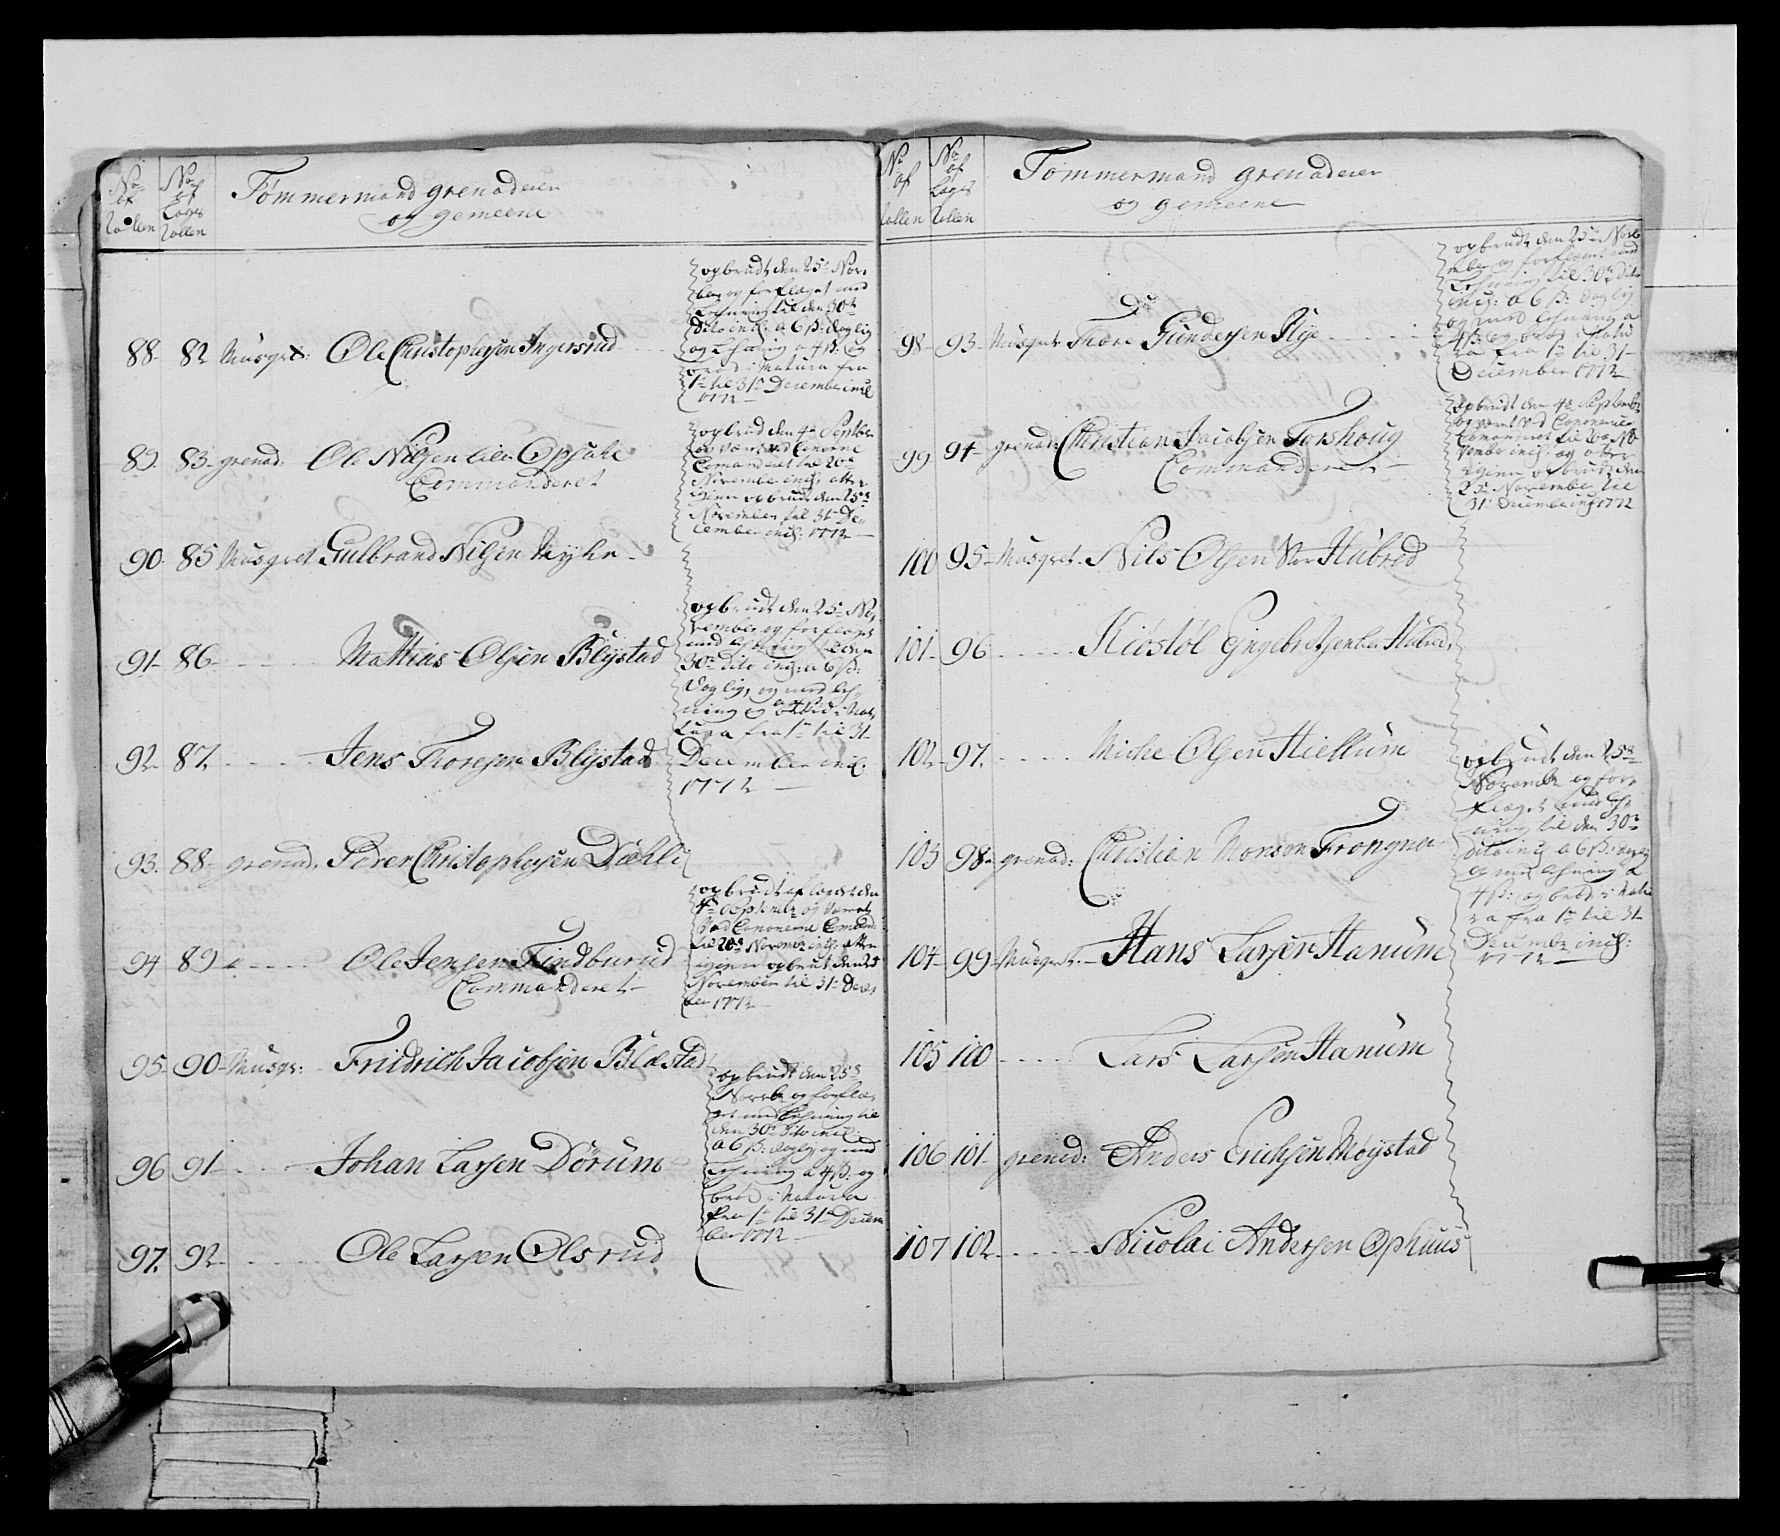 No af Rollen
No af Lages Rollen
Tømmermænd grenaderer
og gemeene
88- 82 Musqet: Ole Christophersen Ingersrud
opbrudt den 25de Nov-
ber og forflæget med
Lohning til den 30te
Dito incl: a 6 ß: daglig
og Lohning a 4 ß: og
brød i Natura fra
1te til 31te December incl
1772
89. 83- grenad: Ole Nilsen Opsahl
Commanderet
opbrud den 4de Septbr
og været ved Canonerne
Comanderet til 20de
November incl: atter
igien opbrudt den 25de
November til 31te De-
cember incl: 1772
90. 85 Musqret Gulbrand Nilsen Myhr
91- 86 Mathias Olsen Blystad
opbrudt den 25de No-
vember og forflæget
med Lohning til den
30te dito incl: a 6 ß:
Daglig, og med Loh-
ning a 4 ß og brød i Na-
tura fra 1te til 31te
December incl:
1772
92- 87. Jens Thoresen Blystad
93. 88- grenad: Peder Christophersen Dæhli
94 89 Ole Jensen Findburud
Commanderet
opbrudt den
4de Septembr og været
ved Canonerne Comand:
til 20de Novembr incl: atter
igien opbrudt den 25
November til 31te Decem-
ber 1772
95- 90- Musqr: Fridrich Jacobsen Blæstad
opbrudt den 25de
Novbr og forflæ-
get med Lohning til
den 30te Dito incl:
a 6 ß: daglig og med
Lohning a 4 ß: og
brød i Natura
fra 1te til 31te Decem
ber 1772
96 91- Johan Larsen Dørum
97. 92- Ole Larsen Olsrud
No af Rollen
No af Lages Rollen
Tømmermænd grenaderer
og gemeene
98- 93- Musqet Thore Gundersen Rye
opbrudt den 25de Nov
mber og forflæget med
Lohning til 30te Dito
incl: a 6 ß: daglig
og med Lohning a
4 ß: og brød i Natu
ra fra 1te til 31te
December 1772
99 94- grenad: Christian Jacobsen Torshoug
Commanderet
opbrudt den 4de Septembr
og været ved Canonerne
Comanderet til 20de No
vember incl: og atter
igien opbrudt den
25de November til
31te December incl 1772
100 95- Musqret- Nils Olsen Hubred
101- 96 Kiøstøl Engebretsen Hubred
102- 97. Miche Olsen Hiellum
opbrudt den 25de
Novembr og for-
flæget med Loh-
ning til den 30te
dito incl a 6 ß: daglig
og med Lohning a
4 ß: og brød i Natu
ra fra 1te til 31te
Decembr incl:
1772
103 98- grenad: Christian Morten Frongner
104- 99- Musqret- Hans Larsen Hanum
105 100 Lars Larsen Hanum
106 101- grenad: Anders Erichsen Møystad
107 102 Nicolai Andersen Ophuus